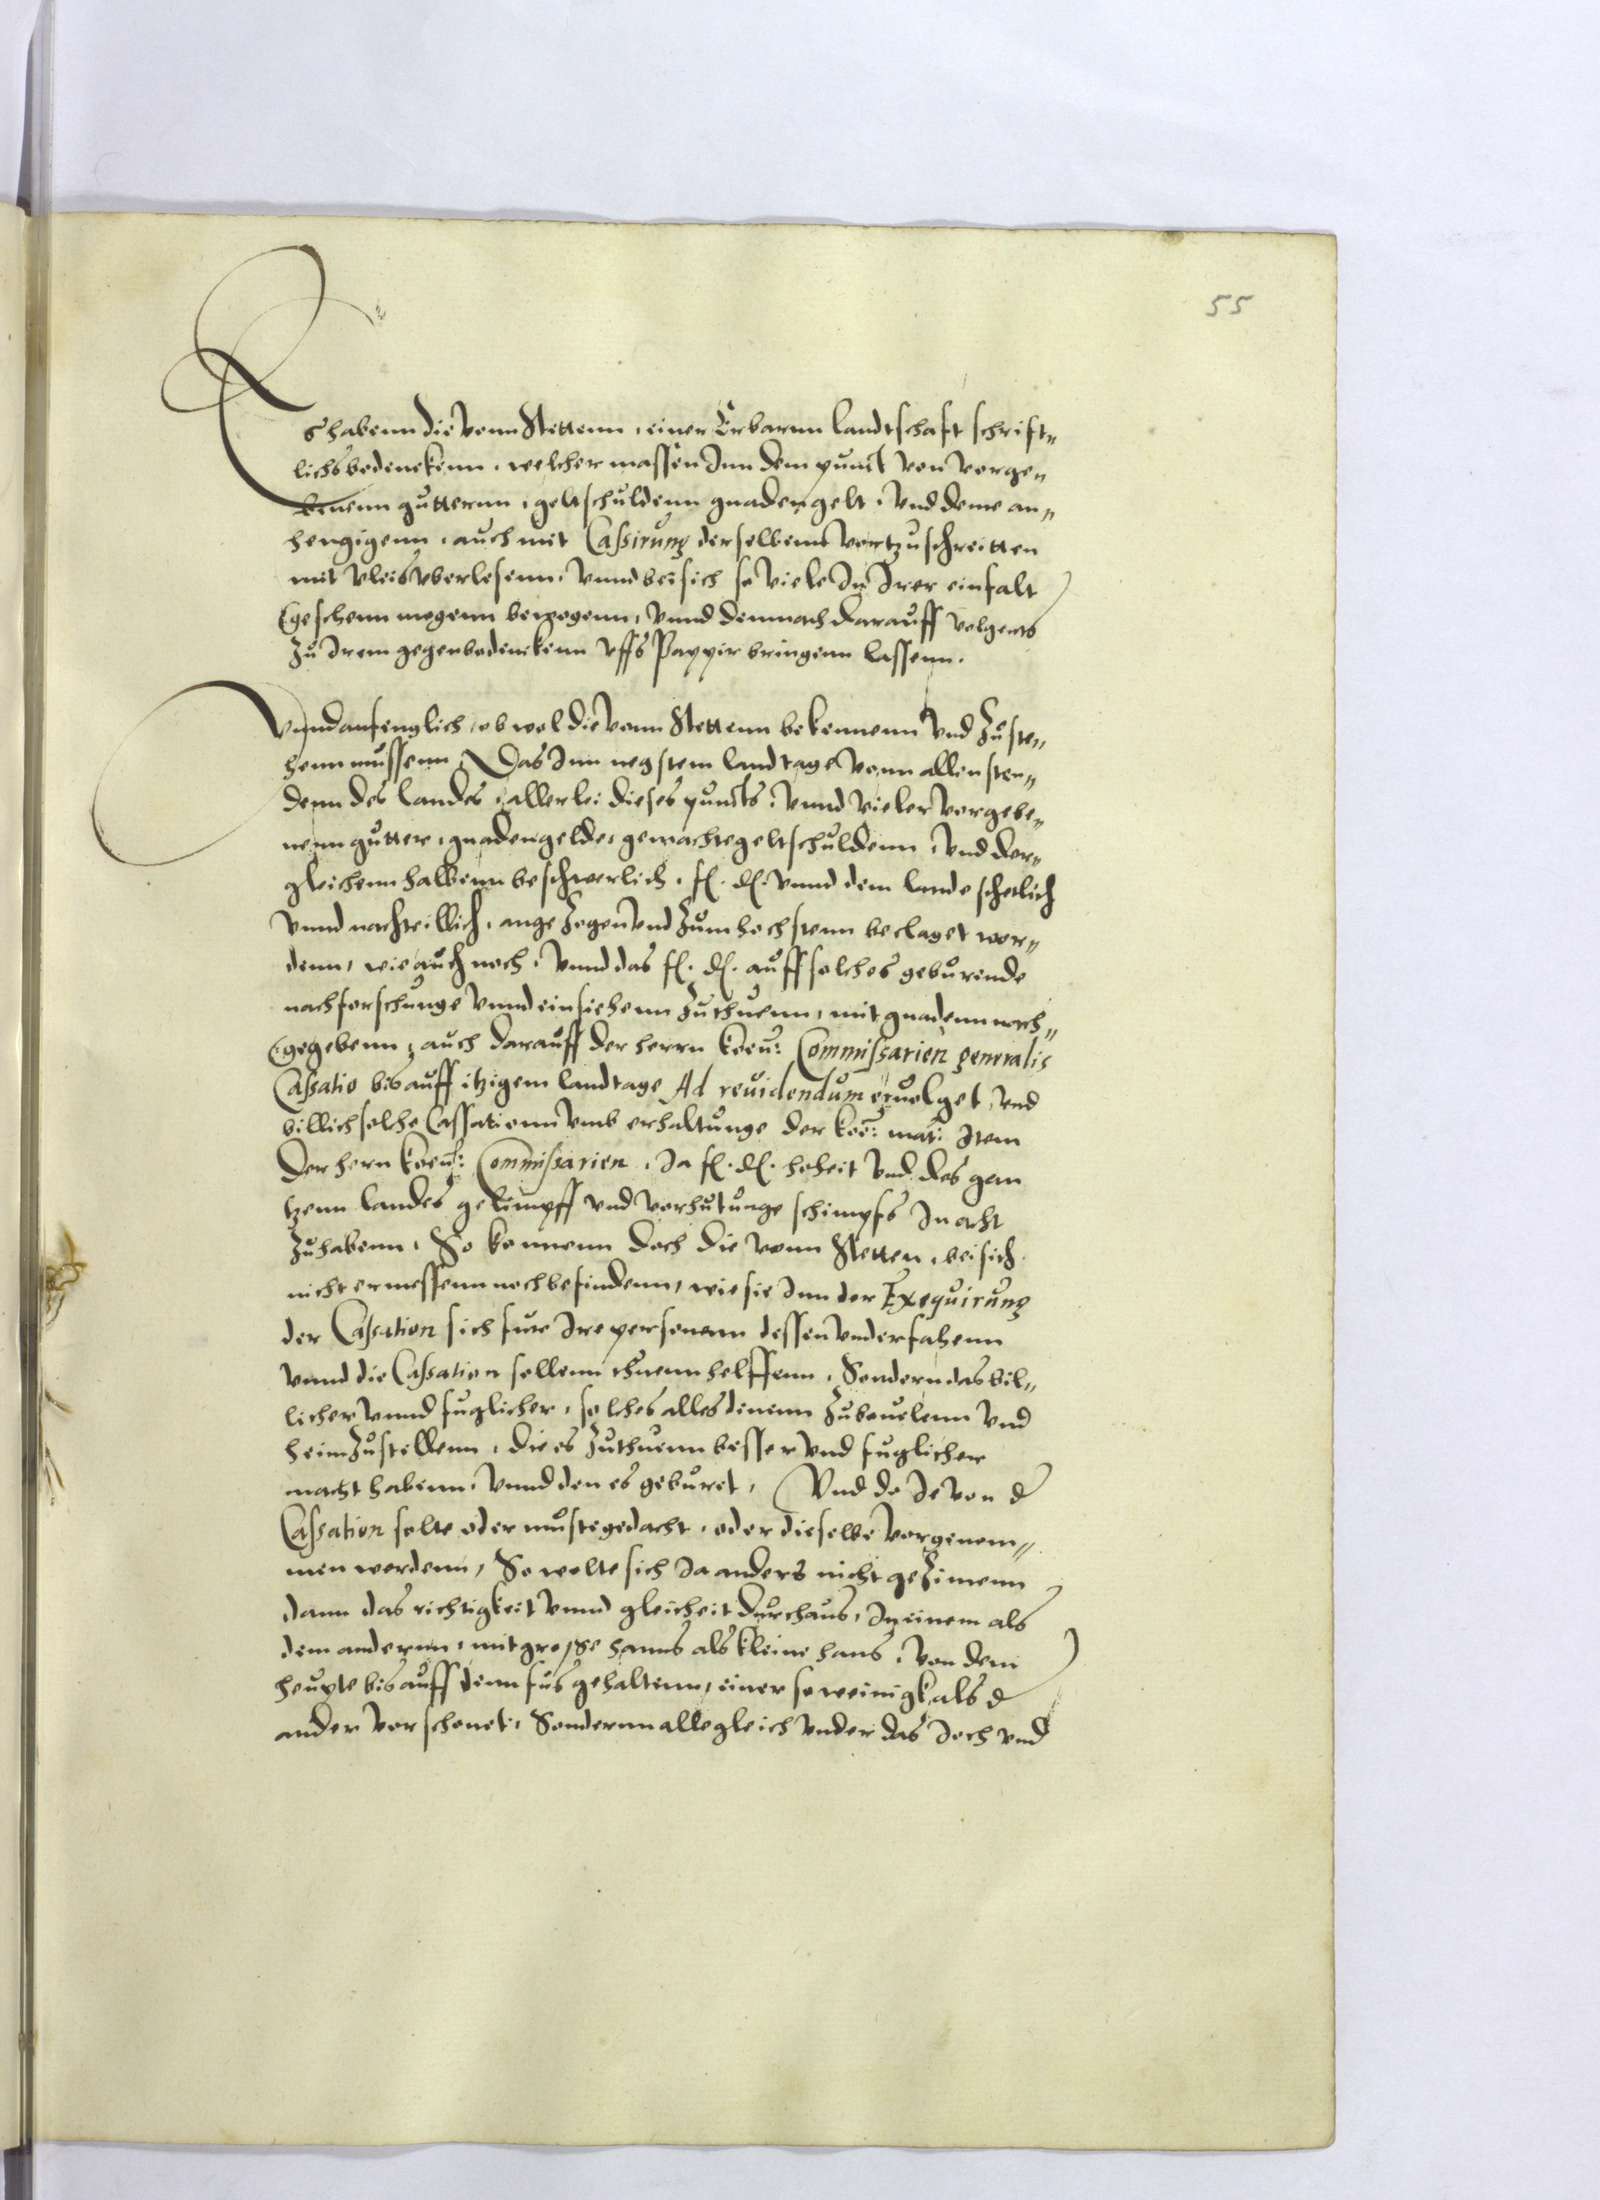 55
Es habenn die vonn Stettenn, einer Erbarnn landtschaft schrift„
lichs bedenckenn, welcher massen Inn dem punct von vorge„
benenn gutternn, geltschuldenn gnadengelt, vnd deme an„
hengigenn, auch mit Cassirung derselbenn vortzuschreitten
mit vleis vberlesenn, vnnd bei sich so viele In Irer einfalt
geschenn mogenn bewogenn, vnnd demnach darauff volgents
zu Irem gegenbedenckenn vffs Pappir bringenn lassenn.
Vnnd anfenglich, ob wol die vonn Stettenn bekennenn vnd zuste„
henn mussenn, Das Inn negstem landtage vonn allen sten„
denn des landes, allerlei dieses puncts, vnnd vieler vorgebe„
nenn gutter, gnadengelde, gemachte geltschuldenn, vnd der„
gleichenn halbenn beschwerlich, f. d. vnnd dem lande schetlich
vnnd nachteillich, angezogen vnd zum hochstenn beclaget wor„
denn, wie auch noch, vnnd das f. d. auff solches geburende
nachforschunge vnnd einsiehenn zuthuenn, mit gnadenn nach„
gegebenn, auch darauff der herrn Koeu: Commissarien generalis
Cassatio bis auff itzigem landtage Ad reuidendum eruolget, vnd
billich solche Cassationn vmb erhaltunge der Koe: mat: Item
der hern Koeu: Commissarien, Ja f. d. hoheit vnd des gan
tzenn landes gelimpff vnd vorhutunge schimpfs In acht
zuhabenn, So konnenn doch die vonn Stetten, bei sich
nicht ermessenn noch befindenn, wie sie Inn der Exequirung
der Cassation sich fure Ire personenn dessen vnderfahenn
vnnd die Cassation sollenn thuenn helffenn, Sondern das bil„
licher vnnd fuglicher, solches alles denenn zubeuelenn vnd
heimzustellenn, die es zuthuenn besser vnd fuglicher
macht habenn, vnnd den es geburet, Vnd do Je von d
Cassation solte oder muste gedacht, oder dieselbe vorgenom„
men werdenn, So wolte sich Ja anders nicht gezimenn
dann das richtigkeit vnnd gleicheit durchaus, In einem als
dem andernn, mit grosse hanns als kleine hans, von dem
heupte bis auff denn fus gehaltenn, einer so weinigk als d
ander vorschonet, Sondernn alle gleich vnder das Joch vnd